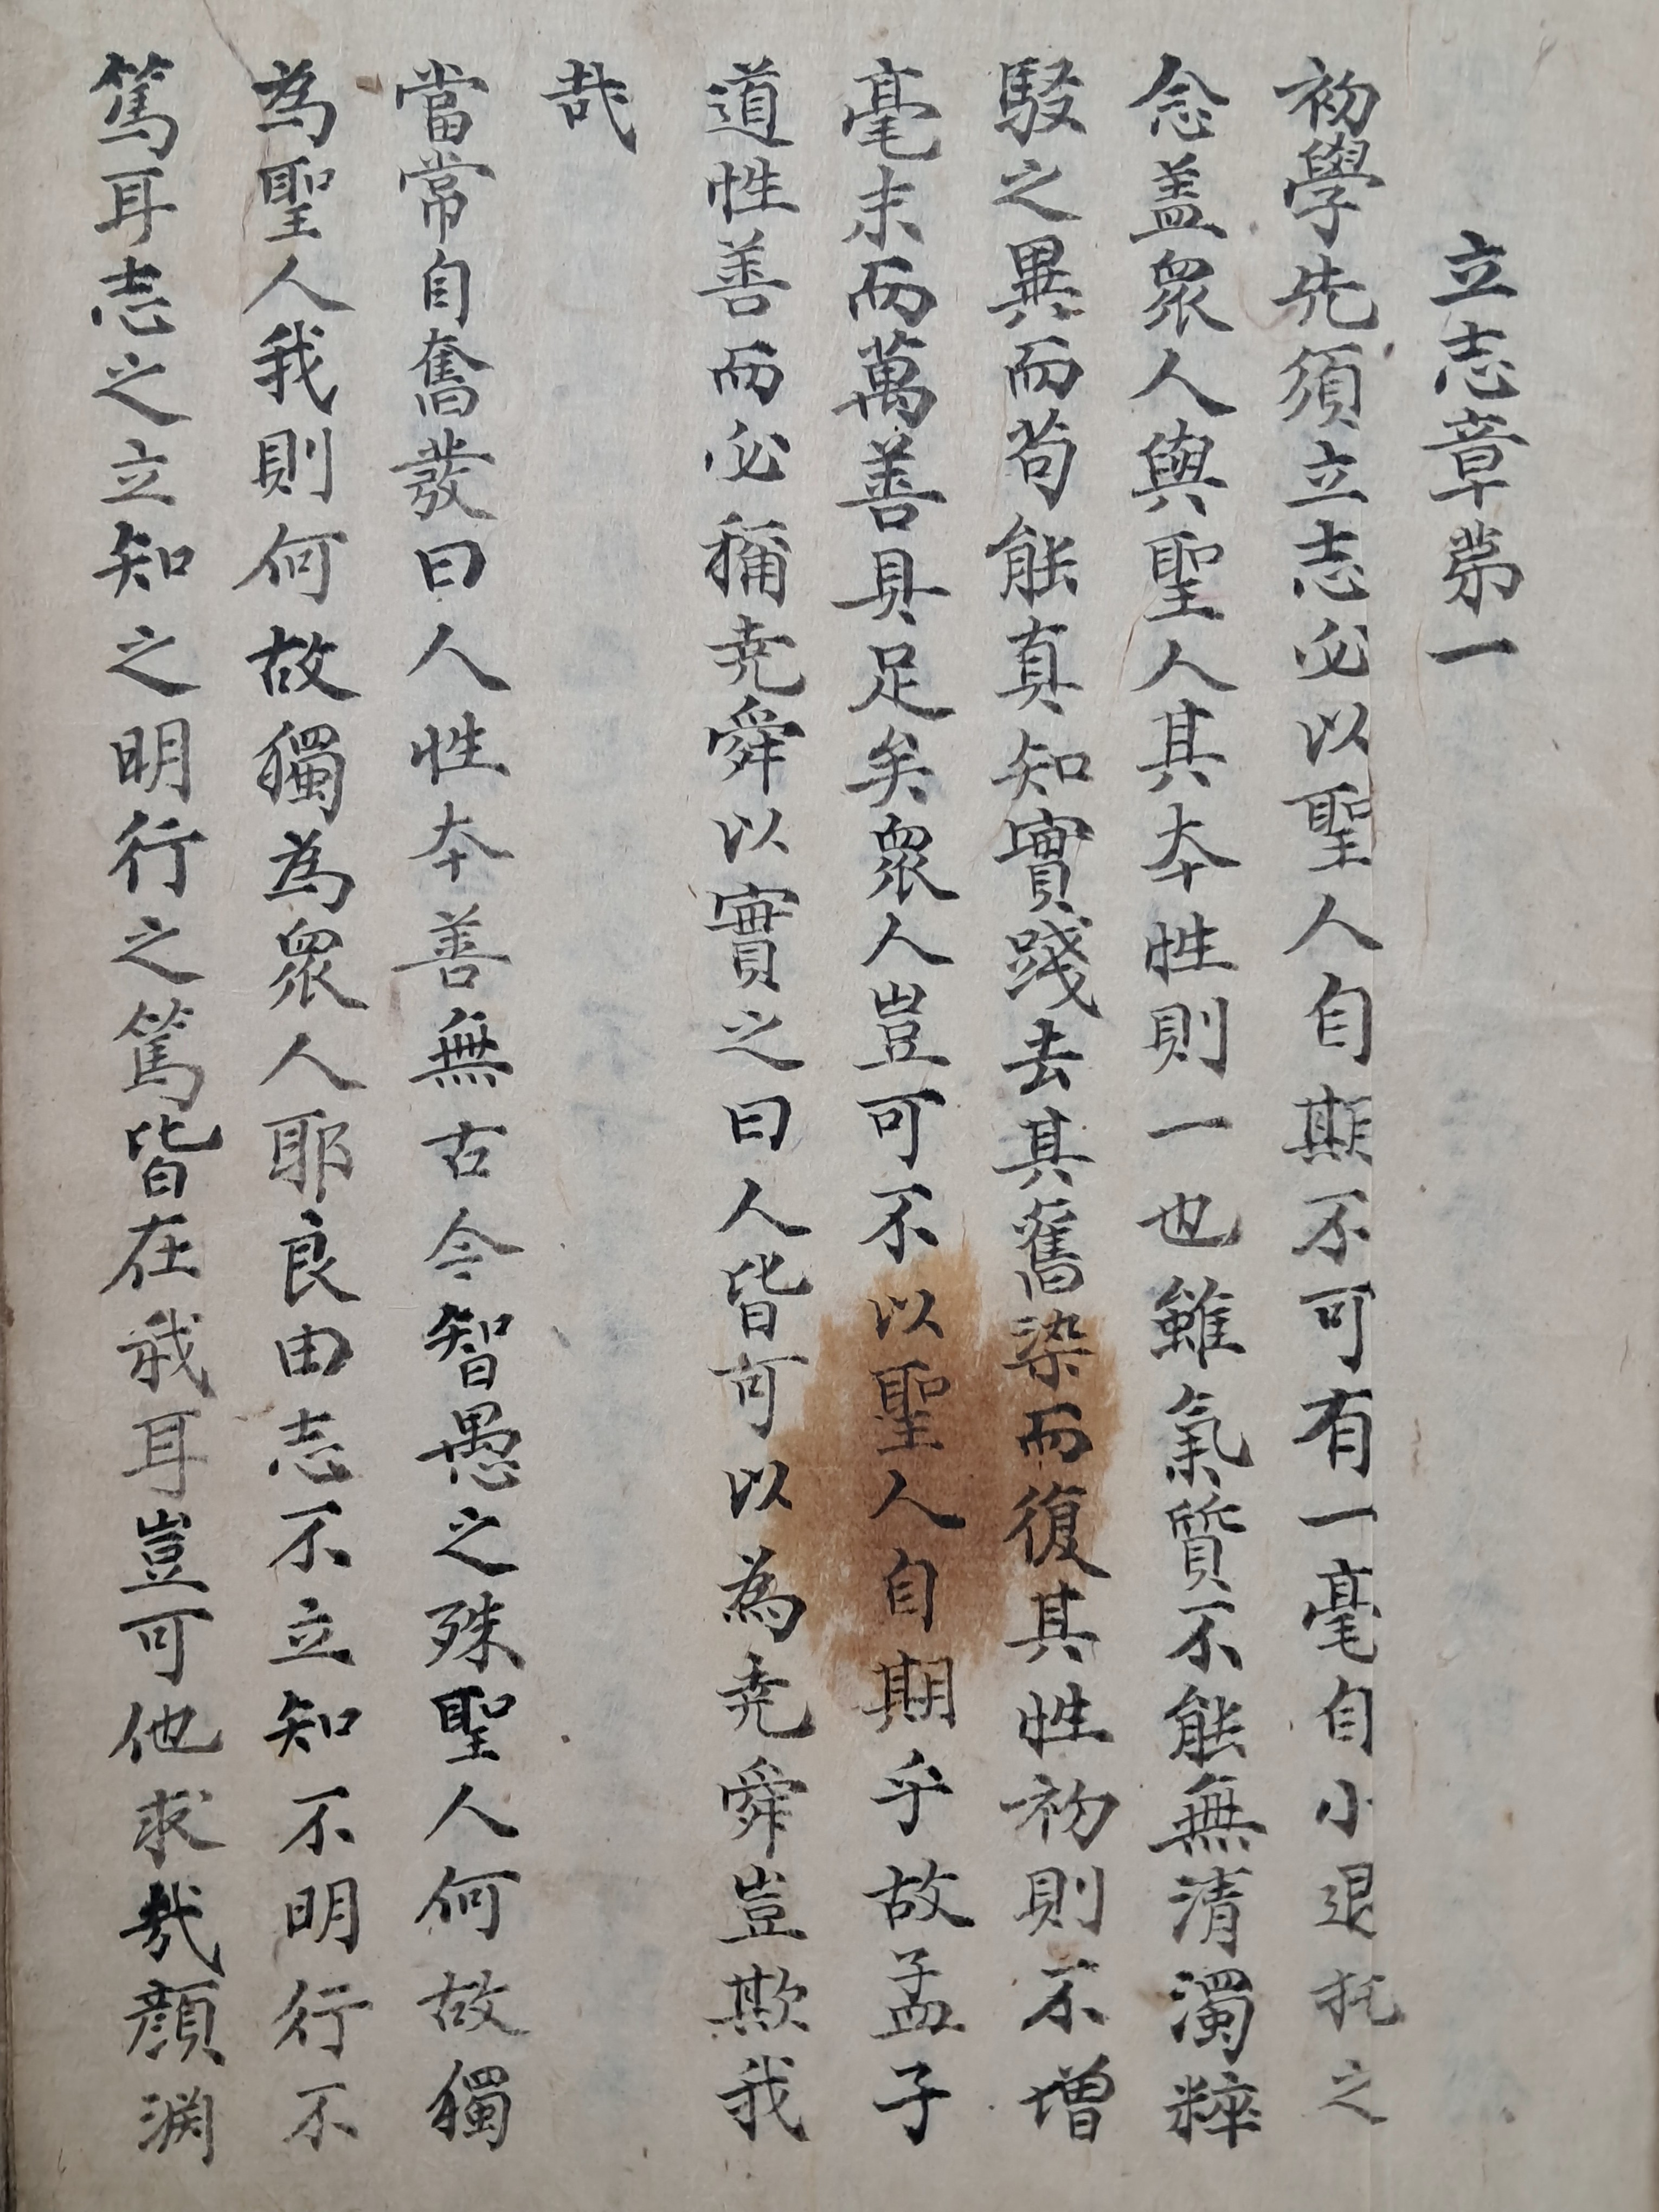 立志章苐一
初學先須立志必以聖人自期不可有一毫自小退托之
念盖衆人與聖人其夲性則一也雖氣質不能無清濁粹
駁之異而苟能真知實踐去其舊染而復其性初則不増
毫末而萬善具足矣衆人豈可不以聖人自期乎故孟子
道性善而必稱尭舜以實之曰人皆可以為尭舜豈欺我
哉
當常自奮發曰人性夲善無古今智愚之殊聖人何故獨
為聖人我則何故獨為衆人耶良由志不立知不明行不
篤耳志之立知之明行之篤皆在我耳豈可他求哉顔渊